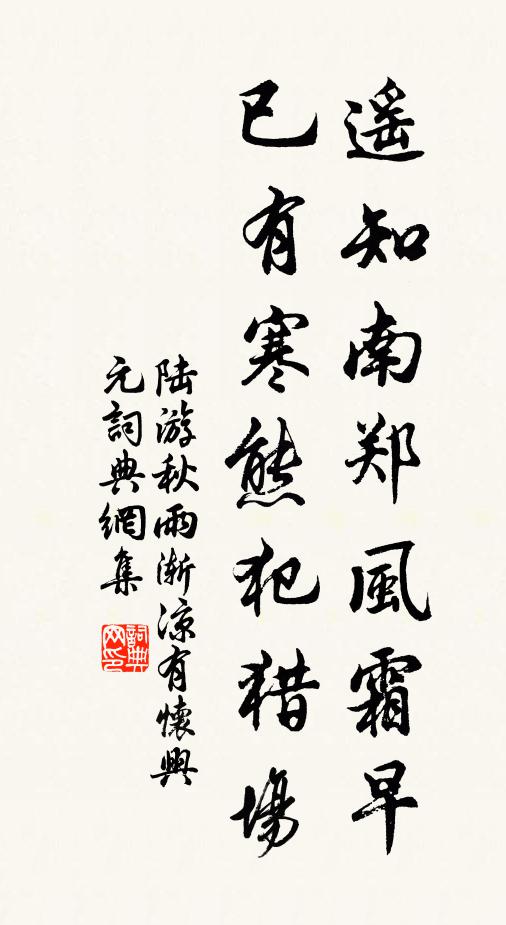 遥知南郑風霜早
已有寒熊犯猎場
陆游秋雨渐凉有懷興
元詞典網集
詞典
网印